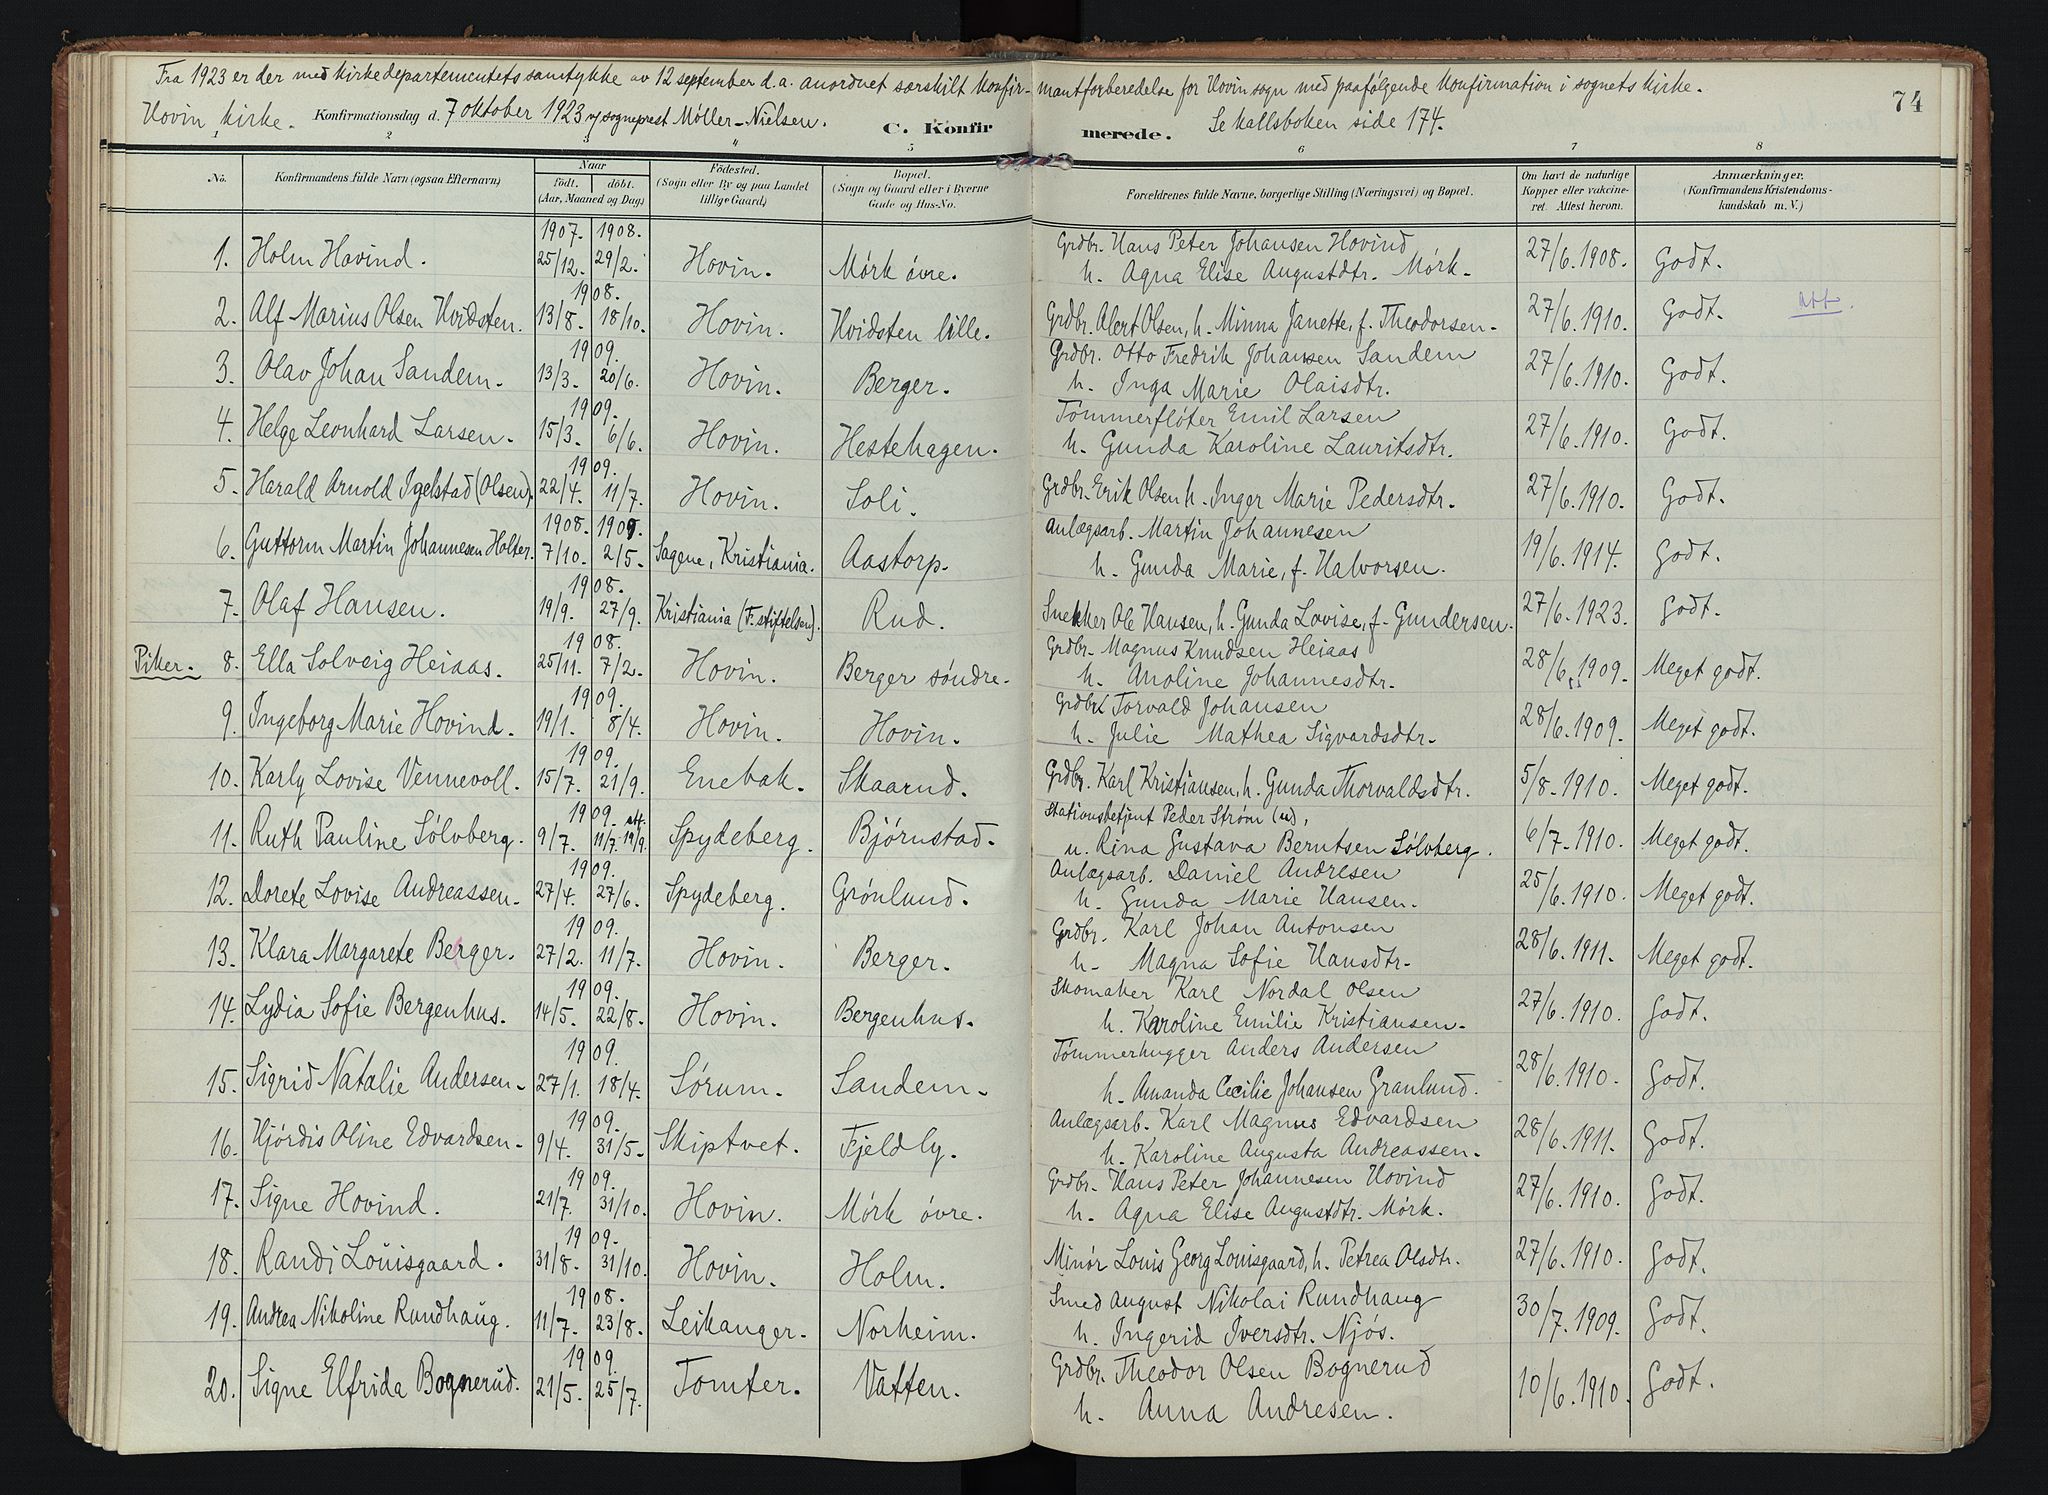 Fra 1923 er der med kirkedepartementets samtykke av 12 september d.a. anordnet særskilt konfirmantforberedelse for Hovin sogn med paafølgende konfirmation i sognets kirke.
74
Hovin kirke. Konfirmationsdag d. 7 oktober 1923 v/ sogneprest Møller-Nielsen. C. Konfirmerede. Se kallsboken side 174.
1 2 3 4 5 6 7 8
No. Konfirmandens fulde Navn (ogsaa Efternavn) Naar født. døbt. (Aar, Maaned og Dag) Fødested. (Sogn eller By og paa Landet tillige Gaard) Bopæl. (Sogn og Gaard eller i Byerne Gade og Hus-No. Forældrenes fulde Navne, borgerlige Stilling (Næringsvei) og Bopæl. Om havt de naturlige Kopper eller vakcineret. Attest herom. Anmærkninger. (Konfirmandens Kristendomskundskab m. V.)
1907. 1908.
1. Holm Hovind. 25/12. 29/2. Hovin. Mørk øvre. Grdbr. Hans Peter Johansen Hovind h. Agna Elise Augustdtr. Mørk. 27/6.1908. Godt.
1908.
2. Alf Marius Olsen Hvidsten. 13/8. 18/10. Hovin. Hvidsten lille. Grdbr. Alert Olsen, h. Minna Janette, f. Theodorsen. 27/6.1910. Godt. att.
1909.
3. Olav Johan Sandem. 13/3. 20/6. Hovin. Berger. Grdbr. Otto Fredrik Johansen Sandem h. Inga Marie Olaisdtr. 27/6.1910. Godt.
1909.
4. Helge Leonhard Larsen. 15/3. 6/6. Hovin. Hestehagen. Tømmerfløter Emil Larsen h. Gunda Karoline Lauritsdtr. 27/6.1910. Godt.
1909.
5. Harald Arnold Igelstad (Olsen). 22/4. 11/7. Hovin. Soli. Grdbr. Erik Olsen h. Inger Marie Pedersdtr. 27/6.1910. Godt.
1908. 1909.
6. Guttorm Martin Johannesen Holter. 7/10. 2/5. Sagene, Kristiania. Aastorp. Anlægsarb. Martin Johannesen h. Gunda Marie, f. Halvorsen. 19/6.1914. Godt.
1908.
7. Olaf Hansen. 19/9. 27/9. Kristiania (F. stiftelsen). Rud. Snekker Ole Hansen, h. Gunda Lovise, f. Gundersen. 27/6.1923. Godt.
1908.
Piker. 8. Ella Solveig Heiaas. 25/11. 7/2. Hovin. Berger søndre. Grdbr. Magnus Knudsen Heiaas h. Anoline Johannesdtr. 28/6.1909. Meget godt.
1909.
9. Ingeborg Marie Hovind. 19/1. 8/4. Hovin. Hovin. Grdbr. Torvald Johansen h. Julie Mathea Sigvardsdtr. 28/6.1909. Meget godt.
1909.
10. Karly Lovise Vennevoll. 15/7. 21/9. Enebak. Skaarud. Grdbr. Karl Kristiansen, h. Gunda Thorvaldsdtr. 5/8.1910. Meget godt.
1909. att.
11. Ruth Pauline Sølvberg. 9/7. 11/7. 19/9. Spydeberg. Bjørnstad. Stationsbetjent Peder Strøm (u), u. Rina Gustava Berntsen Sølvberg. 6/7.1910. Meget godt.
1909.
12. Dorete Lovise Andreassen. 27/4. 27/6. Spydeberg. Grønlund. Anlægsarb. Daniel Andresen h. Gunda Marie Hansen. 25/6.1910. Meget godt.
1909.
13. Klara Margarete Berger. 27/2. 11/7. Hovin. Berger. Grdbr. Karl Johan Antonsen h. Magna Sofie Hansdtr. 28/6.1911. Meget godt.
1909.
14. Lydia Sofie Bergenhus. 14/5. 22/8. Hovin. Bergenhus. Skomaker Karl Nordal Olsen h. Karoline Emilie Kristiansen. 27/6.1910. Godt.
1909.
15. Sigrid Natalie Andersen. 27/1. 18/4. Sørum. Sandem. Tømmerhugger Anders Andersen h. Amanda Cecilie Johansen Granlund. 28/6.1910. Godt.
1909.
16. Hjørdis Oline Edvardsen. 9/4. 31/5. Skiptvet. Fjeldly. Anlægsarb. Karl Magnus Edvardsen h. Karoline Augusta Andreassen. 28/6.1911. Godt.
1909.
17. Signe Hovind. 21/7. 31/10. Hovin. Mørk øvre. Grdbr. Hans Peter Johannesen Hovind h. Agna Elise Augustdtr. Mørk. 27/6.1910. Godt.
1909.
18. Randi Louisgaard. 31/8. 31/10. Hovin. Holm. Minør Louis Georg Louisgaard, h. Petrea Olsdtr. 27/6.1910. Godt.
1908.
19. Andrea Nikoline Rundhaug. 11/7. 23/8. Leikanger. Norheim. Smed August Nikolai Rundhaug h. Ingerid Iversdtr. Njøs. 30/7.1909. Godt.
1909.
20. Signe Elfrida Bognerud. 21/5. 25/7. Tomter. Vatten. Grdbr. Theodor Olsen Bognerud h. Anna Andresen. 10/6.1910. Godt.